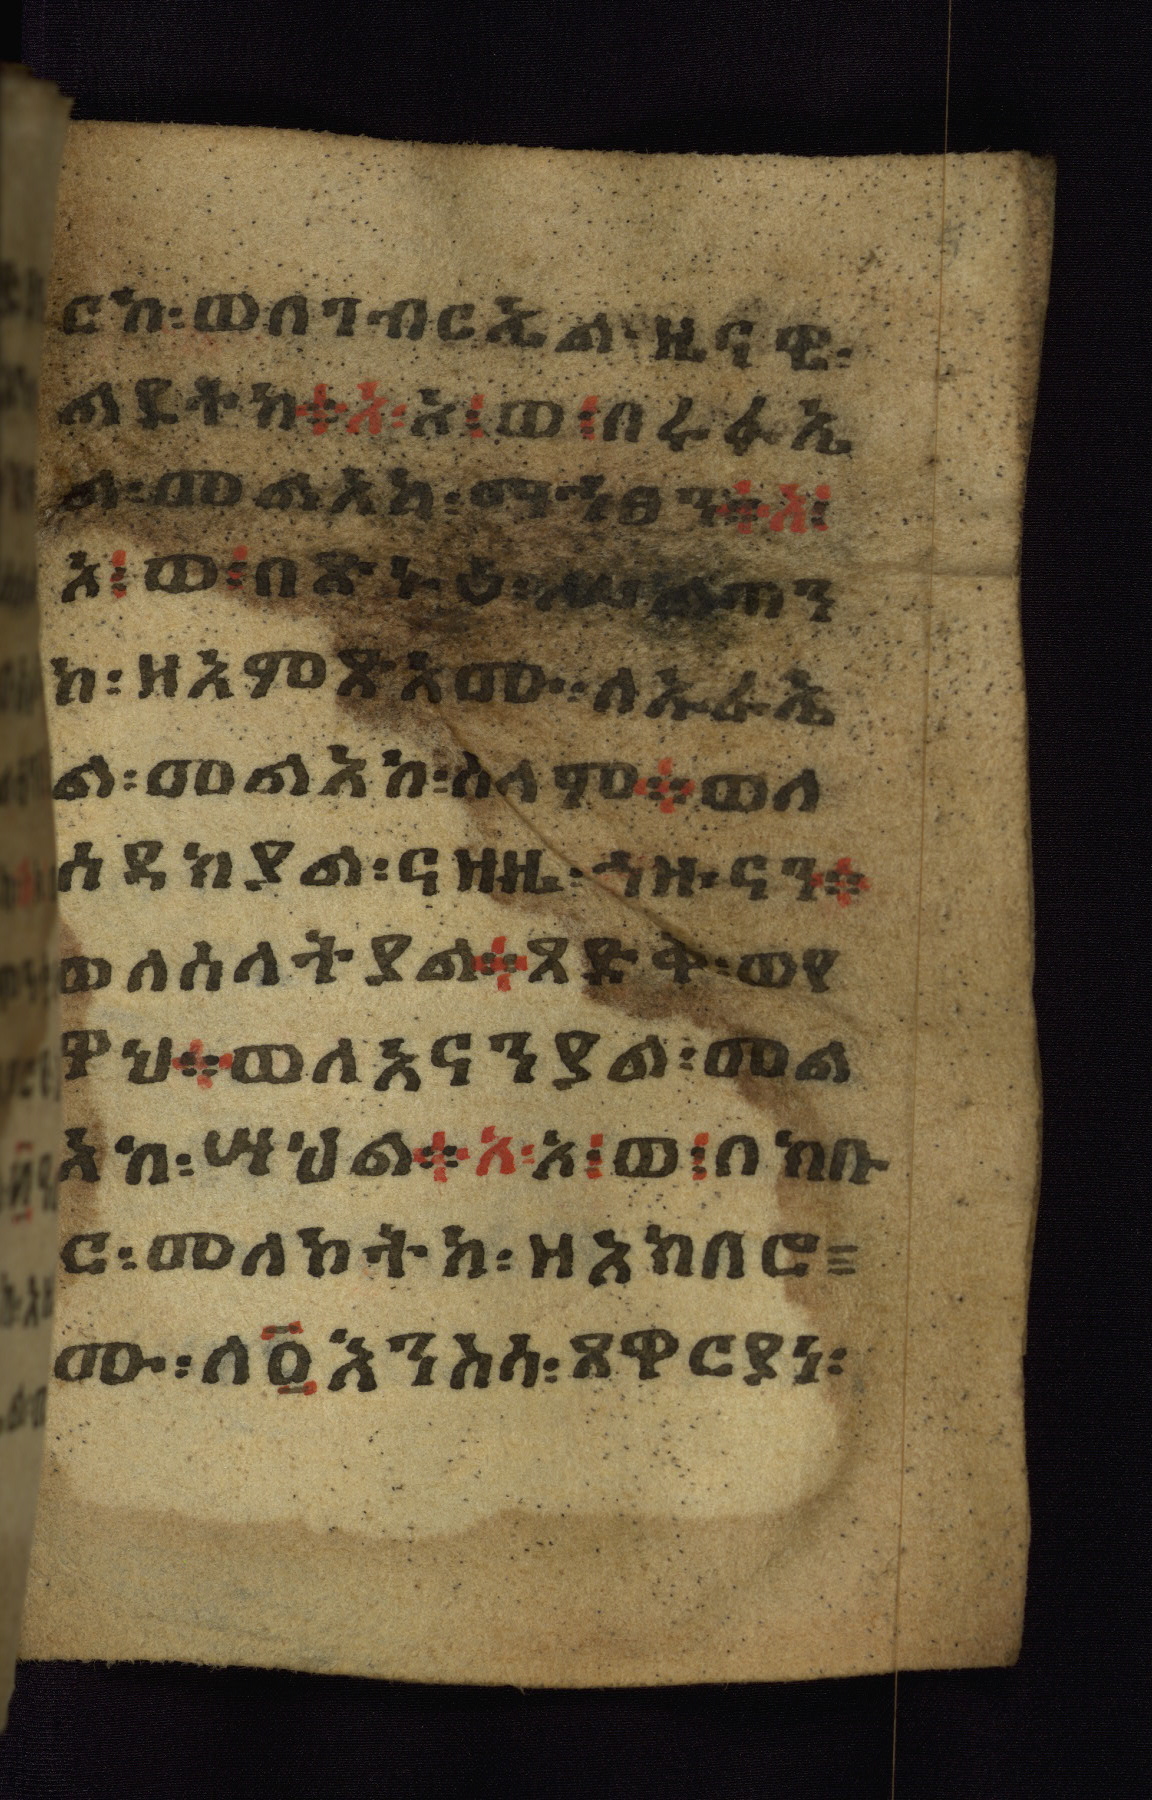 ርከ፡ወለገብርኤል፡ዜናዊ፡
ልደትከ፨እ፡እ፡ወ፡በሩፋኤ
ል፡መልአክ፡
እ፡ወ፡በጽኑዕ፡
ከ፡ዘእምጽአሙ፡ለኡራኤ
ል፡መልአከ፡ሰላም፨ወለ
ሰዳክያል፡ናዘዜ፡ኅዙናን፨
ወለሰላትያል፨ጸድቅ፡ወየ
ዋህ፨ወለአናንያል፡መል
አከ፡ሣህል፨እ፡እ፡ወ፡በክቡ
ር፡መለኮትከ፡ዘአክበሮ
ሙ፡ለ፬እንስሳ፡ጸዋርያነ፡